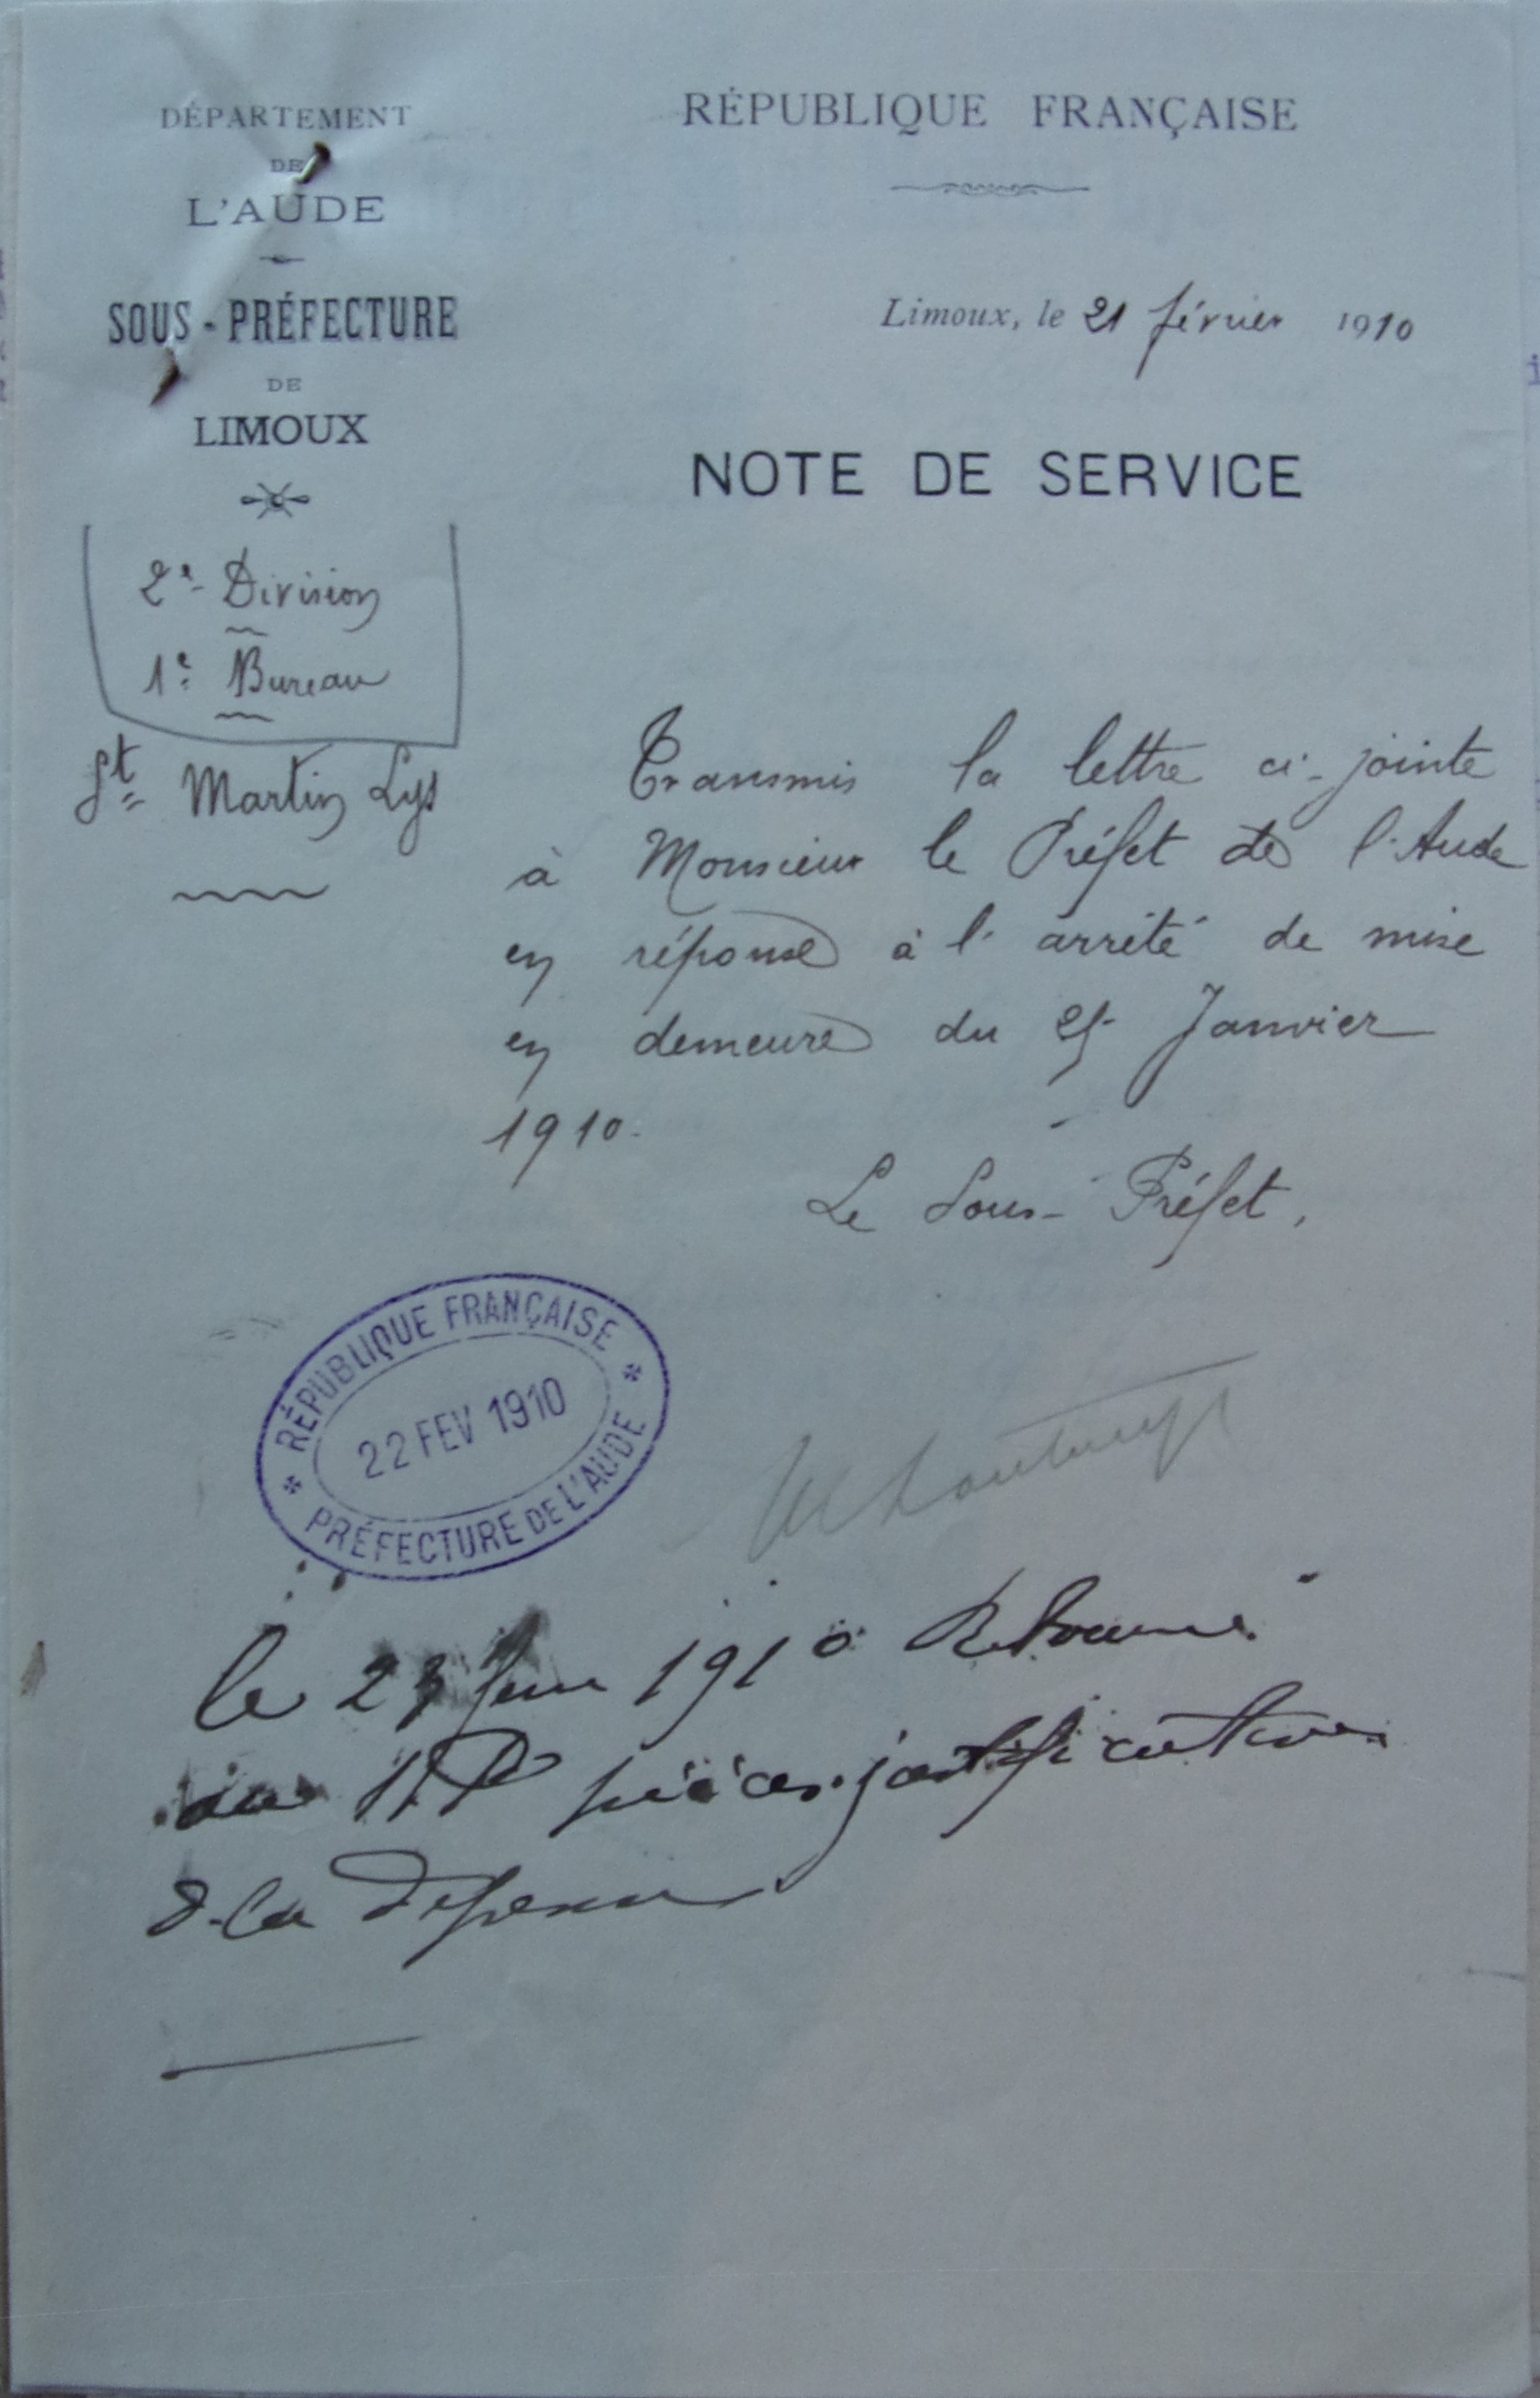 DÉPARTEMENT
DE
L'AUDE
SOUS-PRÉFECTURE
DE
LIMOUX
2e Division
1e Bureau
St Martin Lys
RÉPUBLIQUE FRANÇAISE
Limoux, le 21 février 1910
NOTE DE SERVICE
Transmis la lettre ci-jointe
à Monsieur le Préfet de l'Aude
en réponse à l'arrêté de mise
en demeure du Janvier
1910.
Le Sous-Préfet,
RÉPUBLIQUE FRANÇAISE
22 FEV 1910
PRÉFECTURE DE L'AUDE
le 1910 Retourné
pièces justificatives
d. la dépense